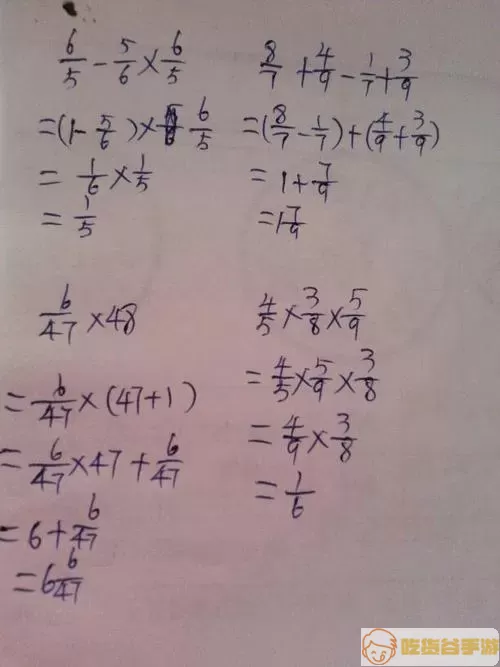 6/5 - 5/6 × 6/5
= (1 - 5/6) × 6/5
= 1/6 × 1/5
= 1/5
8/7 + 4/9 - 1/7 + 3/9
= (8/7 - 1/7) + (4/9 + 3/9)
= 1 + 7/9
= 1 7/9
6/47 × 48
= 6/47 × (47 + 1)
= 6/47 × 47 + 6/47
= 6 + 6/47
= 6 6/47
4/5 × 3/8 × 5/9
= 4/5 × 5/9 × 3/8
= 4/9 × 3/8
= 1/6
吃货谷手游